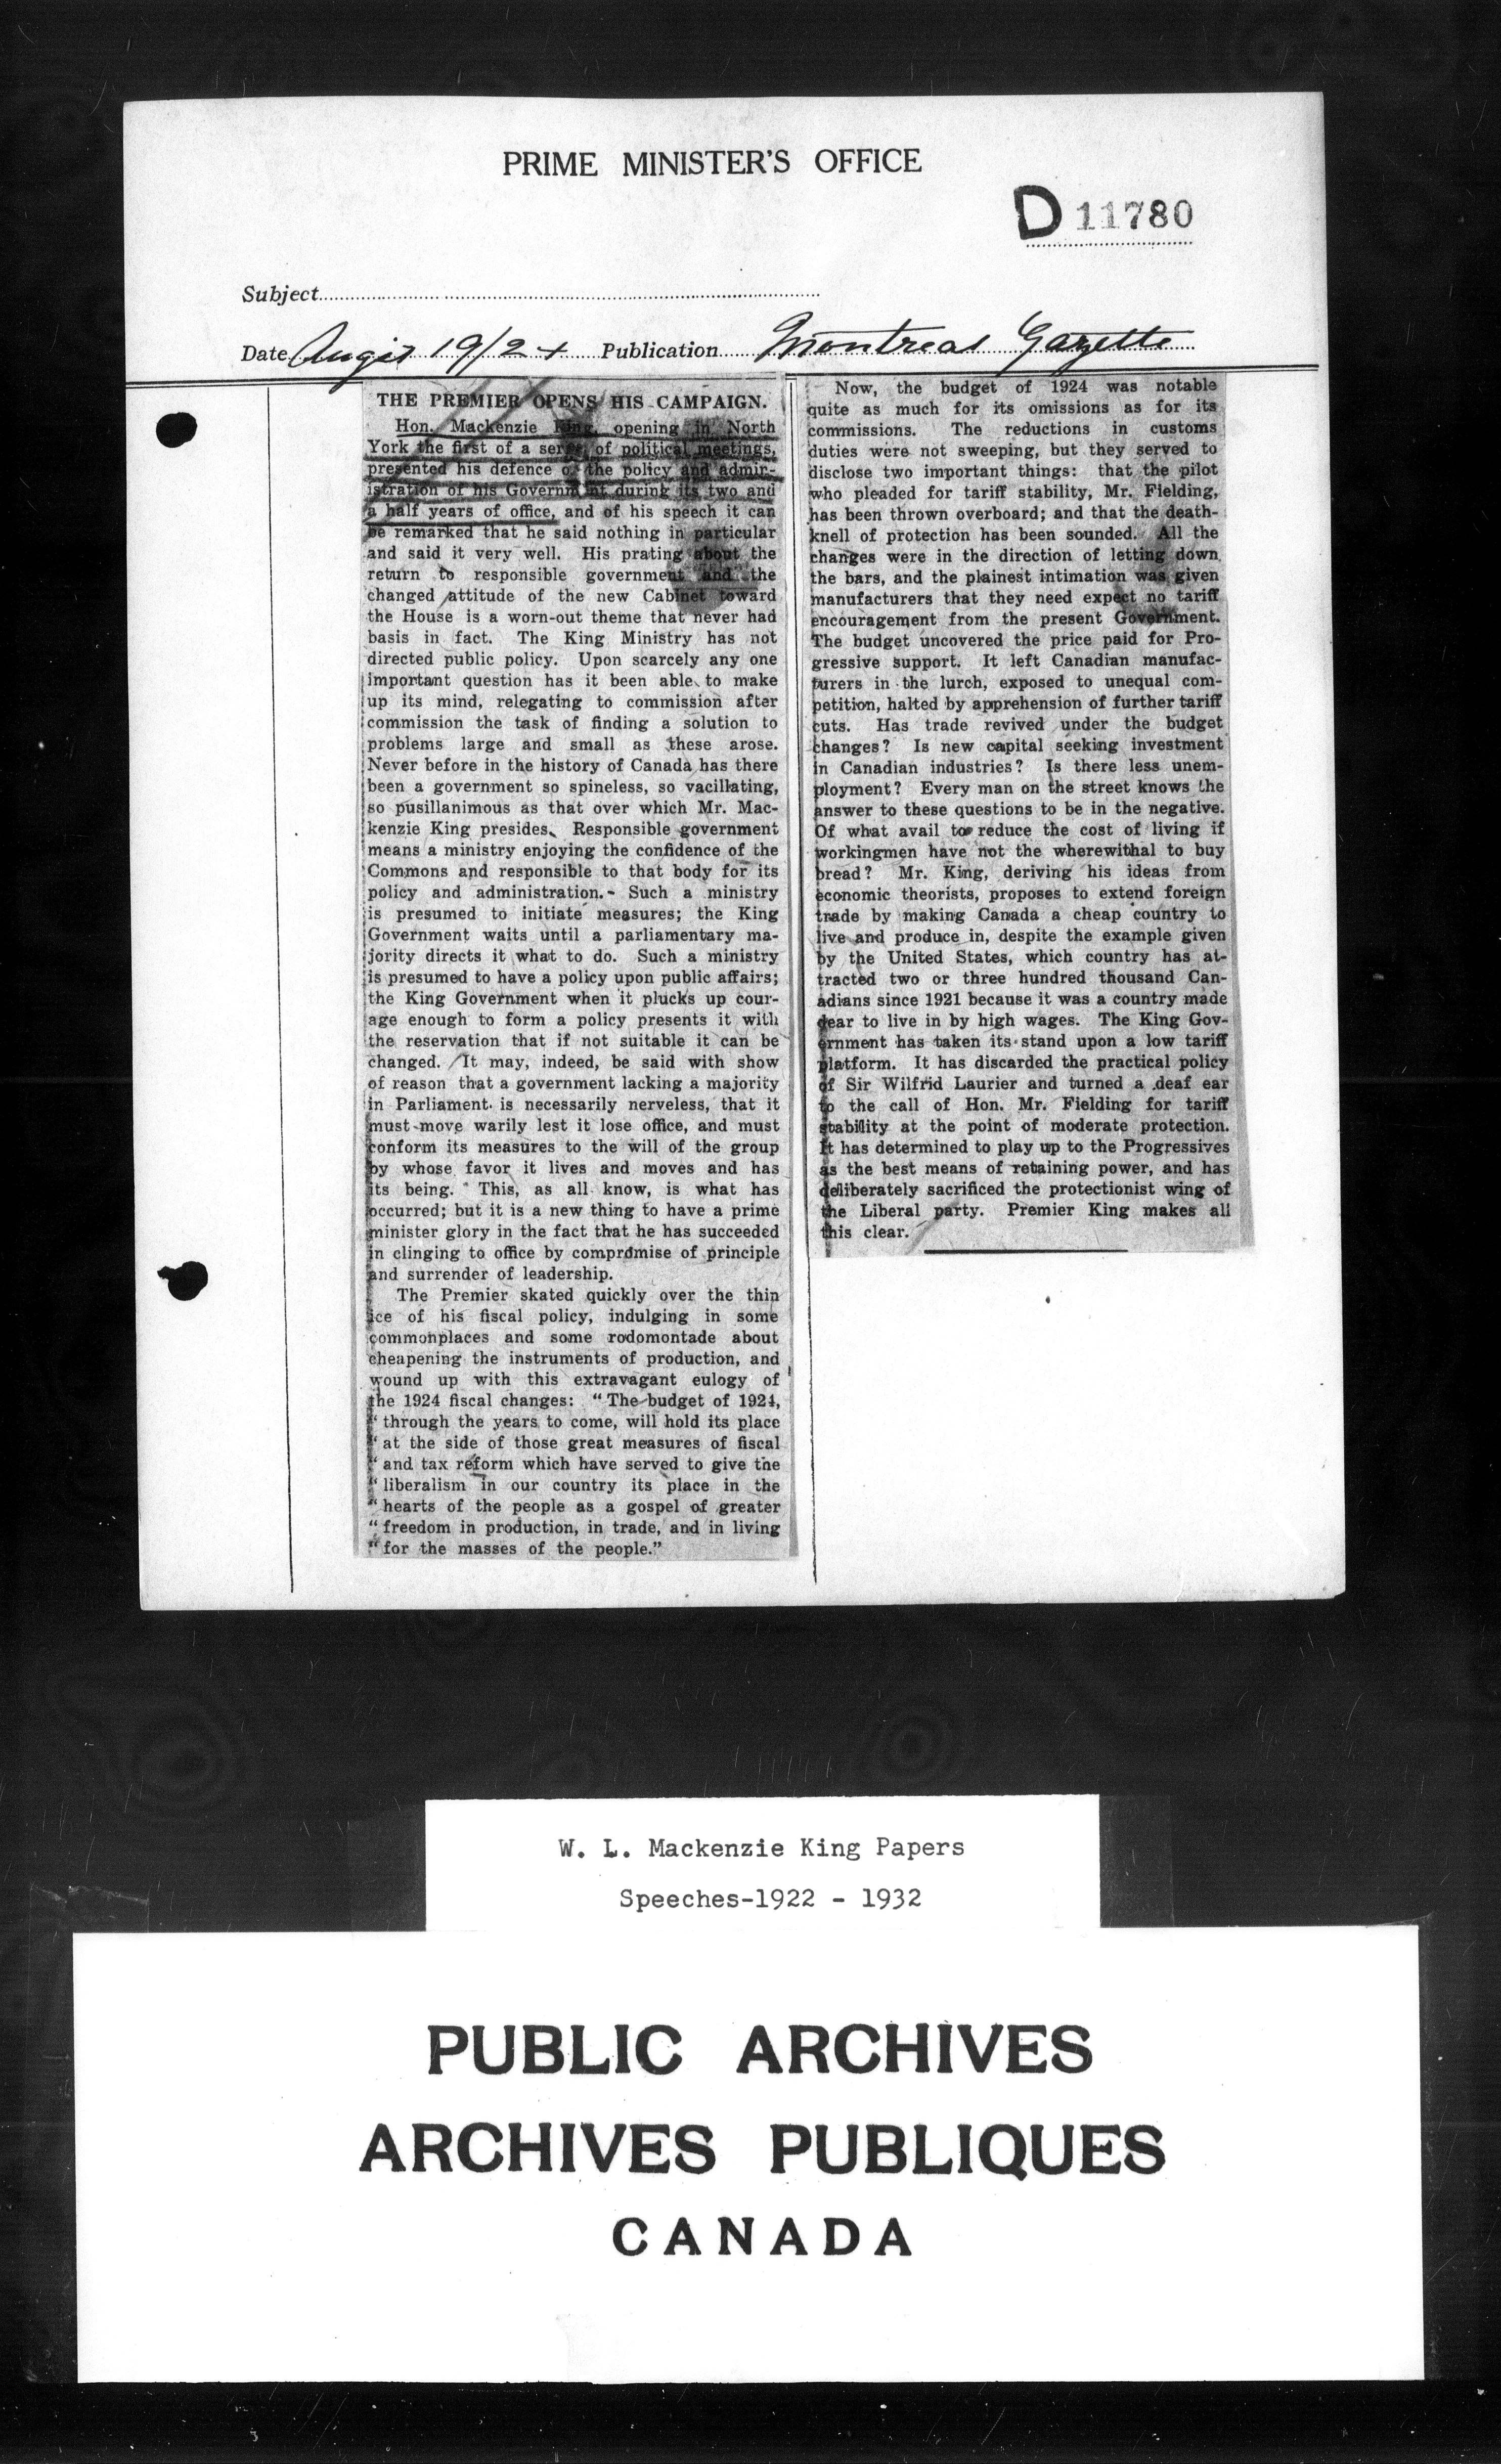 PRIME MINISTER'S OFFICE
D 11780
Subject
Date Aug 19/24 Publication Montreal Gazette
THE PREMIER OPENS HIS CAMPAIGN.
Hon. Mackenzie King, opening in North
York the first of a series of political meetings,
presented his defence of the policy and admin-
istration of his Government during its two and
a half years of office, and of his speech it can
be remarked that he said nothing in particular
and said it very well. His prating about the
return to responsible government and the
changed attitude of the new Cabinet toward
the House is a worn-out theme that never had
basis in fact. The King Ministry has not
directed public policy. Upon scarcely any one
important question has it been able to make
up its mind, relegating to commission after
commission the task of finding a solution to
problems large and small as these arose.
Never before in the history of Canada has there
been a government so spineless, so vacillating,
so pusillanimous as that over which Mr. Mac-
kenzie King presides. Responsible government
means a ministry enjoying the confidence of the
Commons and responsible to that body for its
policy and administration. Such a ministry
is presumed to initiate measures; the King
Government waits until a parliamentary ma-
jority directs it what to do. Such a ministry
is presumed to have a policy upon public affairs;
the King Government when it plucks up cour-
age enough to form a policy presents it with
the reservation that if not suitable it can be
changed. It may, indeed, be said with show
of reason that a government lacking a majority
in Parliament is necessarily nerveless, that it
must move warily lest it lose office, and must
conform its measures to the will of the group
by whose favor it lives and moves and has
its being. This, as all know, is what has
occurred; but it is a new thing to have a prime
minister glory in the fact that he has succeeded
in clinging to office by compromise of principle
and surrender of leadership.
The Premier skated quickly over the thin
ice of his fiscal policy, indulging in some
commonplaces and some rodomontade about
cheapening the instruments of production, and
wound up with this extravagant eulogy of
the 1924 fiscal changes: "The budget of 1924,
"through the years to come, will hold its place
"at the side of those great measures of fiscal
"and tax reform which have served to give the
"liberalism in our country its place in the
"hearts of the people as a gospel of greater
"freedom in production, in trade, and in living
"for the masses of the people."
Now, the budget of 1924 was notable
quite as much for its omissions as for its
commissions. The reductions in customs
duties were not sweeping, but they served to
disclose two important things: that the pilot
who pleaded for tariff stability, Mr. Fielding,
has been thrown overboard; and that the death-
knell of protection has been sounded. All the
changes were in the direction of letting down
the bars, and the plainest intimation was given
manufacturers that they need expect no tariff
encouragement from the present Government.
The budget uncovered the price paid for Pro-
gressive support. It left Canadian manufac-
turers in the lurch, exposed to unequal com-
petition, halted by apprehension of further tariff
cuts. Has trade revived under the budget
changes? Is new capital seeking investment
in Canadian industries? Is there less unem-
ployment? Every man on the street knows the
answer to these questions to be in the negative.
Of what avail to reduce the cost of living if
workingmen have not the wherewithal to buy
bread? Mr. King, deriving his ideas from
economic theorists, proposes to extend foreign
trade by making Canada a cheap country to
live and produce in, despite the example given
by the United States, which country has at-
tracted two or three hundred thousand Can-
adians since 1921 because it was a country made
dear to live in by high wages. The King Gov-
ernment has taken its stand upon a low tariff
platform. It has discarded the practical policy
of Sir Wilfrid Laurier and turned a deaf ear
to the call of Hon. Mr. Fielding for tariff
stability at the point of moderate protection.
It has determined to play up to the Progressives
as the best means of retaining power, and has
deliberately sacrificed the protectionist wing of
the Liberal party. Premier King makes all
this clear.
W. L. Mackenzie King Papers
Speeches-1922 - 1932
PUBLIC ARCHIVES
ARCHIVES PUBLIQUES
CANADA